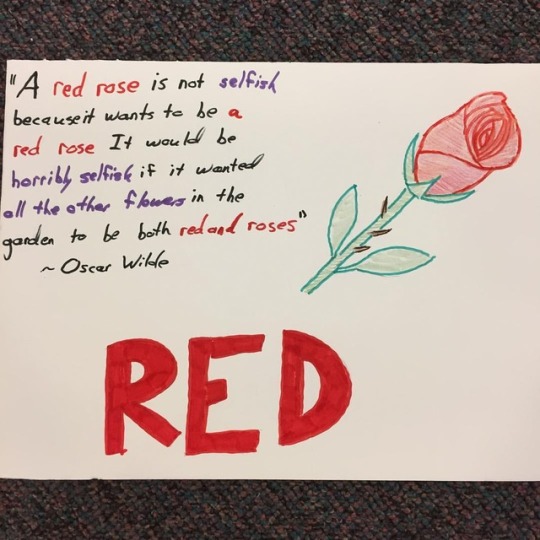 "A red rose is not selfish
because it wants to be a
red rose It would be
horribly selfish if it wanted
all the other flowers in the
garden to be both red and roses"
~ Oscar Wilde
RED